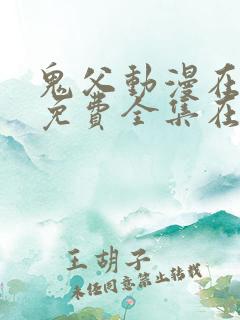 鬼父動漫在
免費全集在
王胡子
未任同意禁止转载